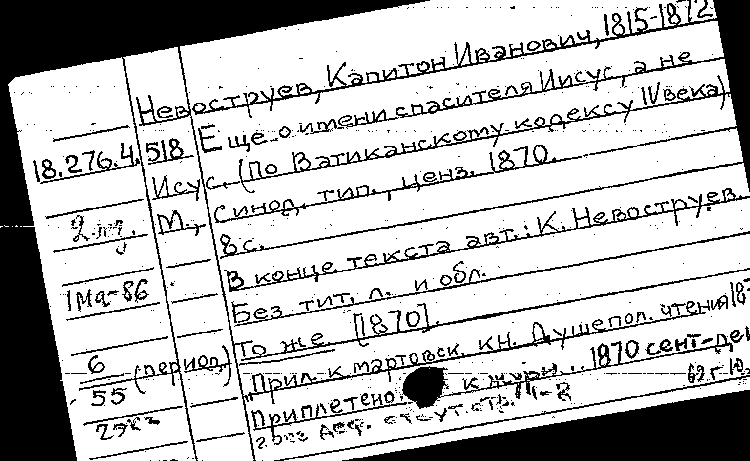 Невоструев, Капитон Иванович, 1815-1872
18.276.4.518 Еще о имени спасителя Иисус, а не
Исус. (По Ватиканскому кодексу IV века)
2 эт. М., Синод. тип., ценз. 1870.
8 с.
1 Ма-86 В конце текста авт.: К. Невоструев.
Без тит. л. и обл.
То же [1870].
6/55 (период.) "Прил. к мартовск. кн. Душепол. чтения 18
Приплетено к журн. 1870 сент-дек
2 экз деф. отсут. стр.